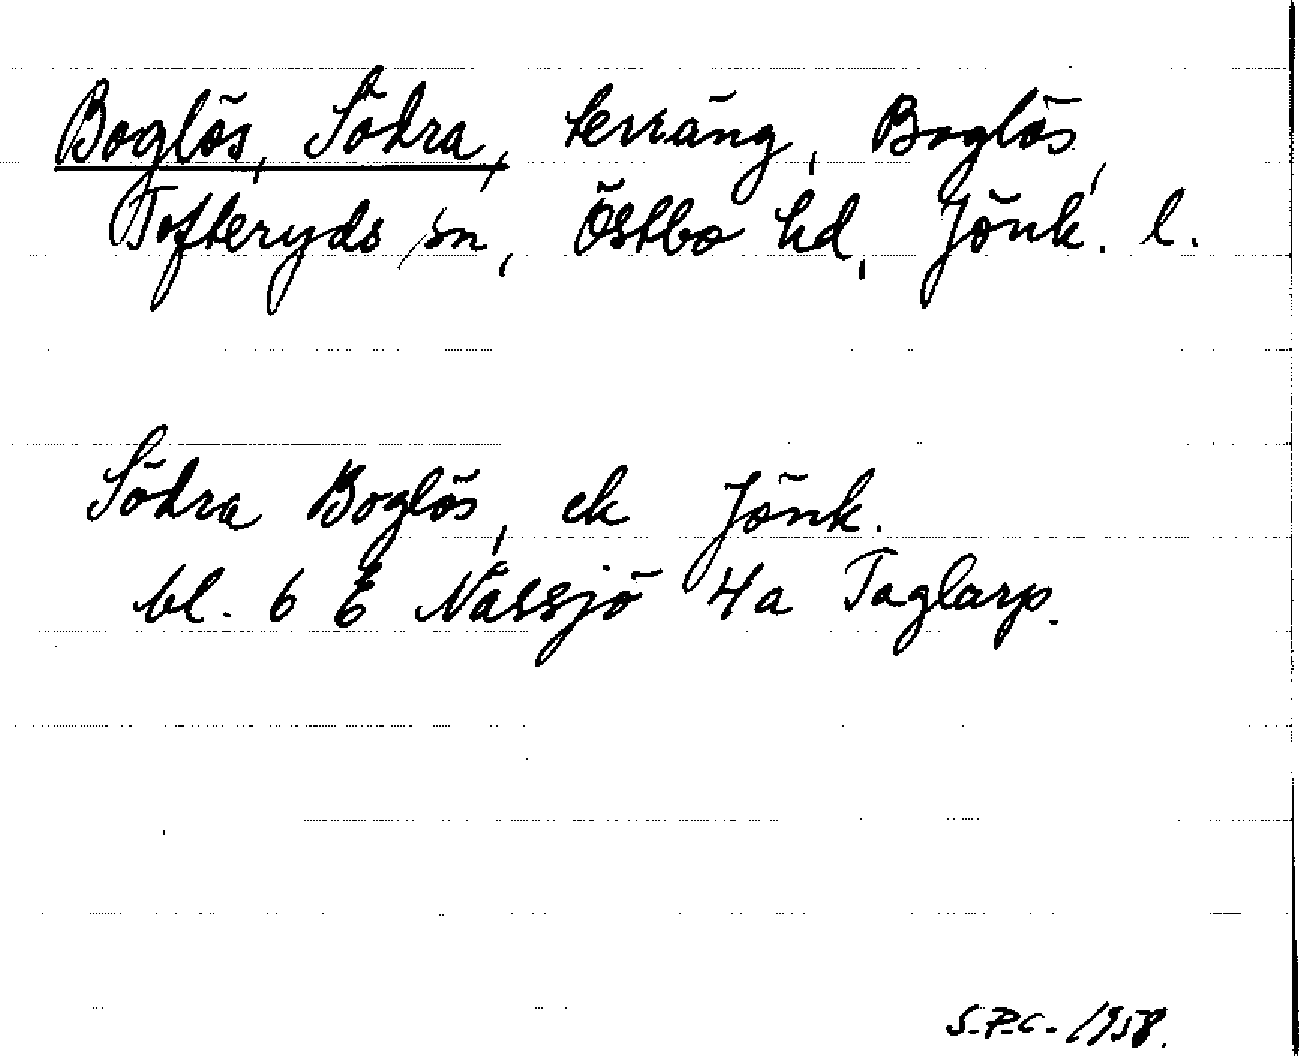 Boglös, Södra, terräng, Boglös,
Tofteryds sn, Östbo hd, Jönk. l.
Södra Boglös, ek Jönk.
bl. 6 E Nässjö 4a Taglarp.
S.P.C. 1958.